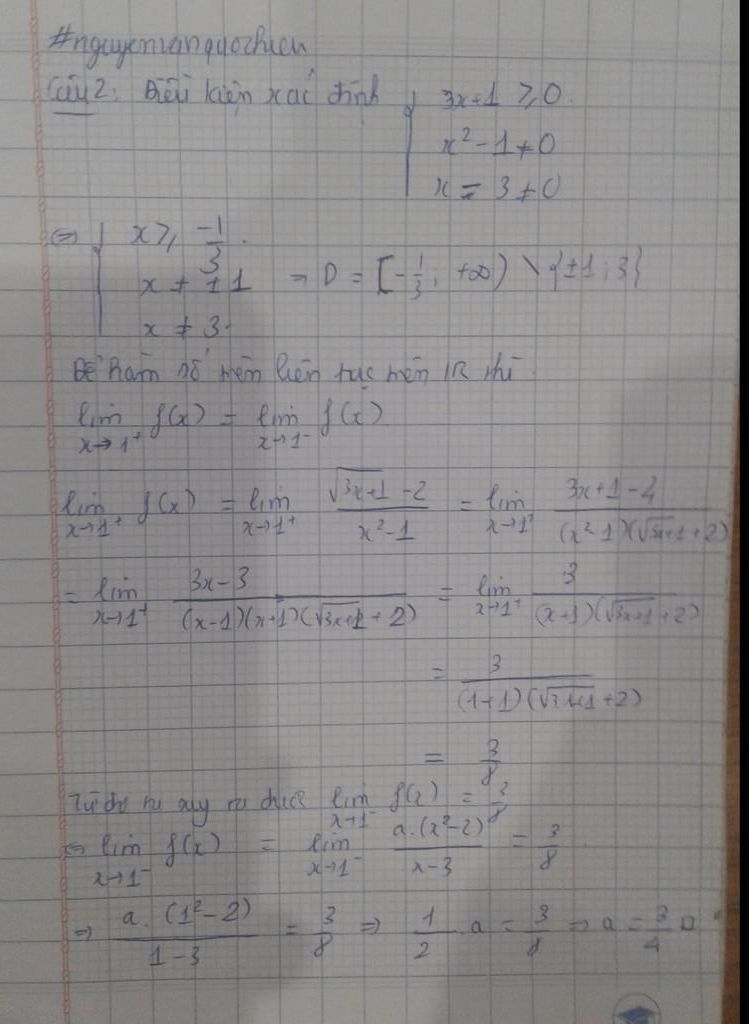 #nguyenvanquocchieu
Câu 2: Điều kiện xác định { 3x+1 ≥ 0.
x² - 1 ≠ 0
x - 3 ≠ 0
⇔ { x ≥ -1/3.
x ≠ ±1 ⇒ D = [-1/3; +∞) \ {±1; 3}
x ≠ 3.
Để hàm số trên liên tục trên ℝ thì
lim x→1⁺ f(x) = lim x→1⁻ f(x)
lim x→1⁺ f(x) = lim x→1⁺ (√(3x+1) - 2)/(x² - 1) = lim x→1⁺ (3x+1-4)/((x²-1)(√(3x+1)+2))
= lim x→1⁺ (3x-3)/((x-1)(x+1)(√(3x+1)+2)) = lim x→1⁺ 3/((x+1)(√(3x+1)+2))
= 3/((1+1)(√(3.1+1)+2))
= 3/8
Từ đó ta suy ra được lim x→1⁻ f(x) = 3/8
⇔ lim x→1⁻ f(x) = lim x→1⁻ (a.(x²-2))/(x-3) = 3/8.
⇒ (a.(1²-2))/(1-3) = 3/8 ⇒ 1/2 .a = 3/8 ⇒ a = 3/4